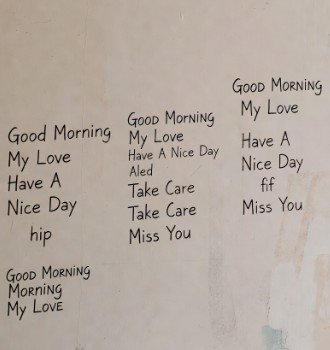 Good Morning
My Love
Have A
Nice Day
hip
Good Morning
Morning
My Love
Good Morning
My Love
Have A Nice Day
Aled
Take Care
Take Care
Miss You
Good Morning
My Love
Have A
Nice Day
fif
Miss You